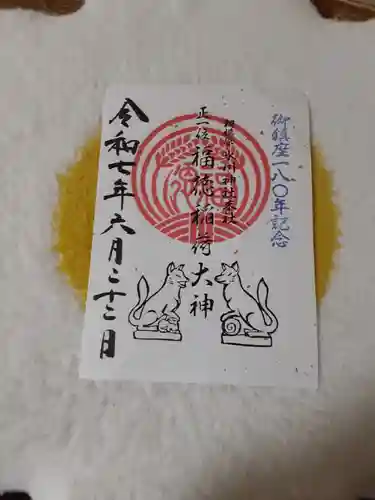 御鎮座一八〇年記念
氷川神社末社
正一位 福徳稲荷大神
令和七年六月二十二日